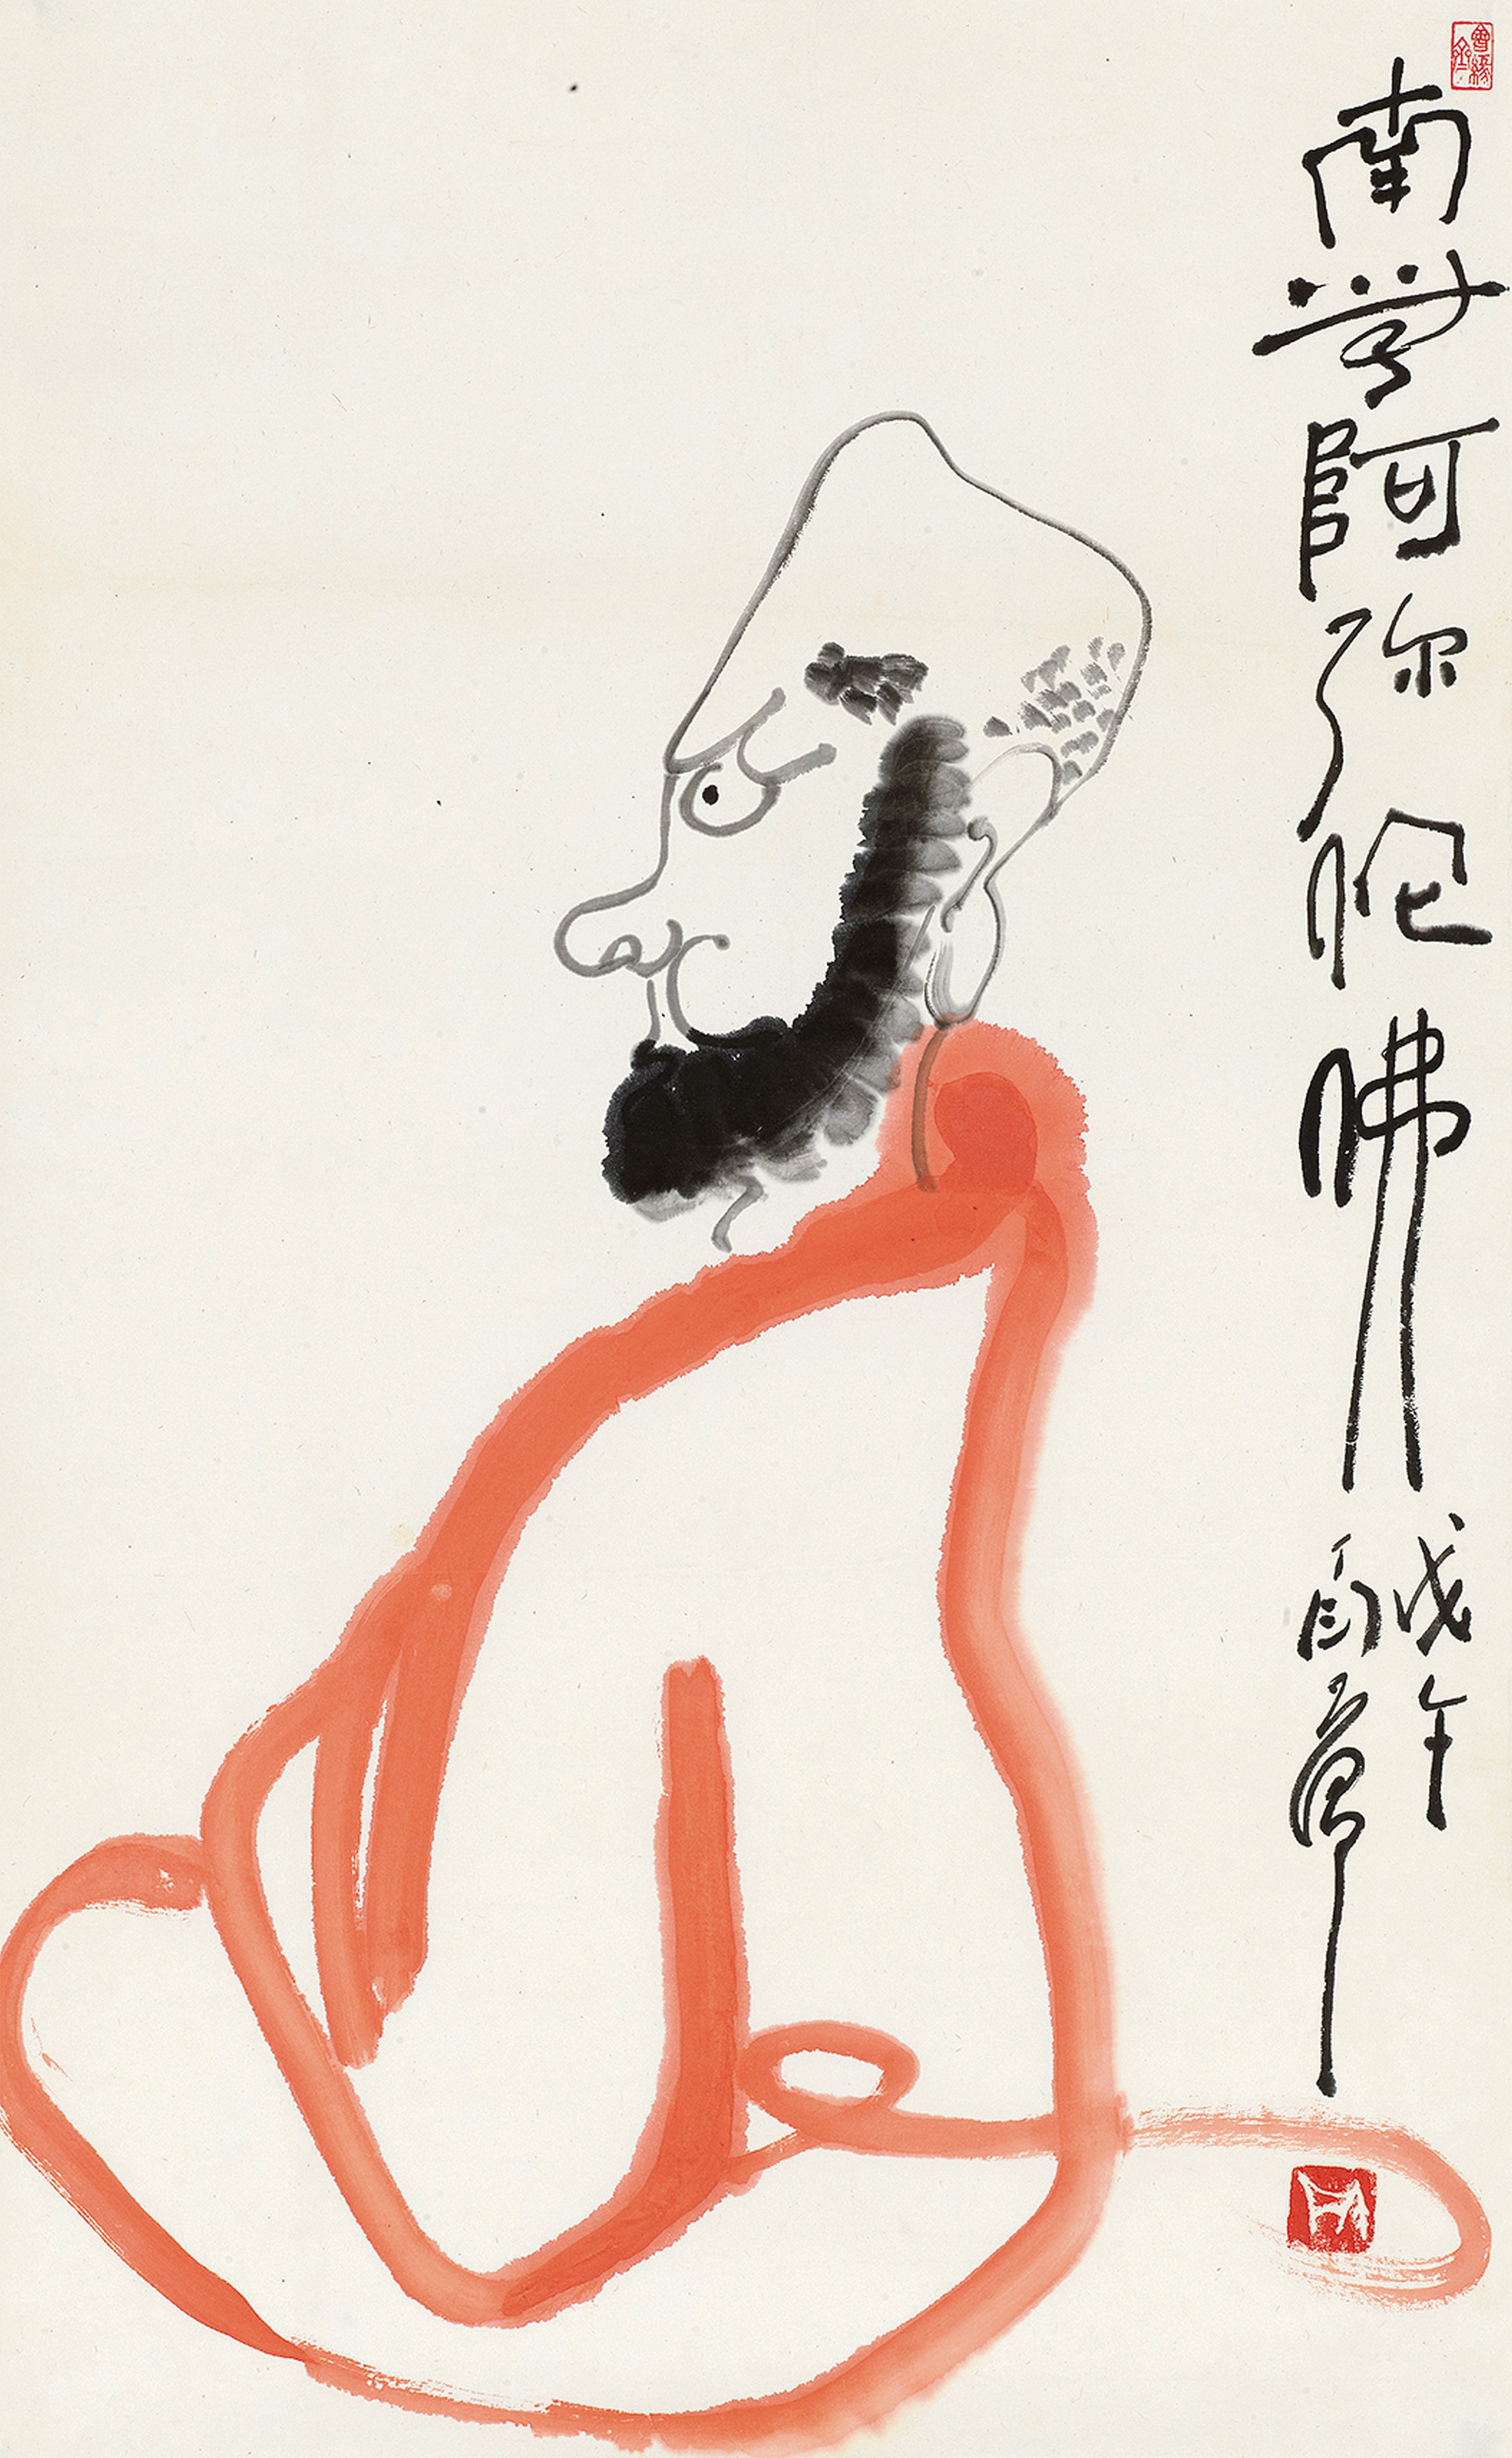 南無阿弥陀佛
戊午
丁衍庸